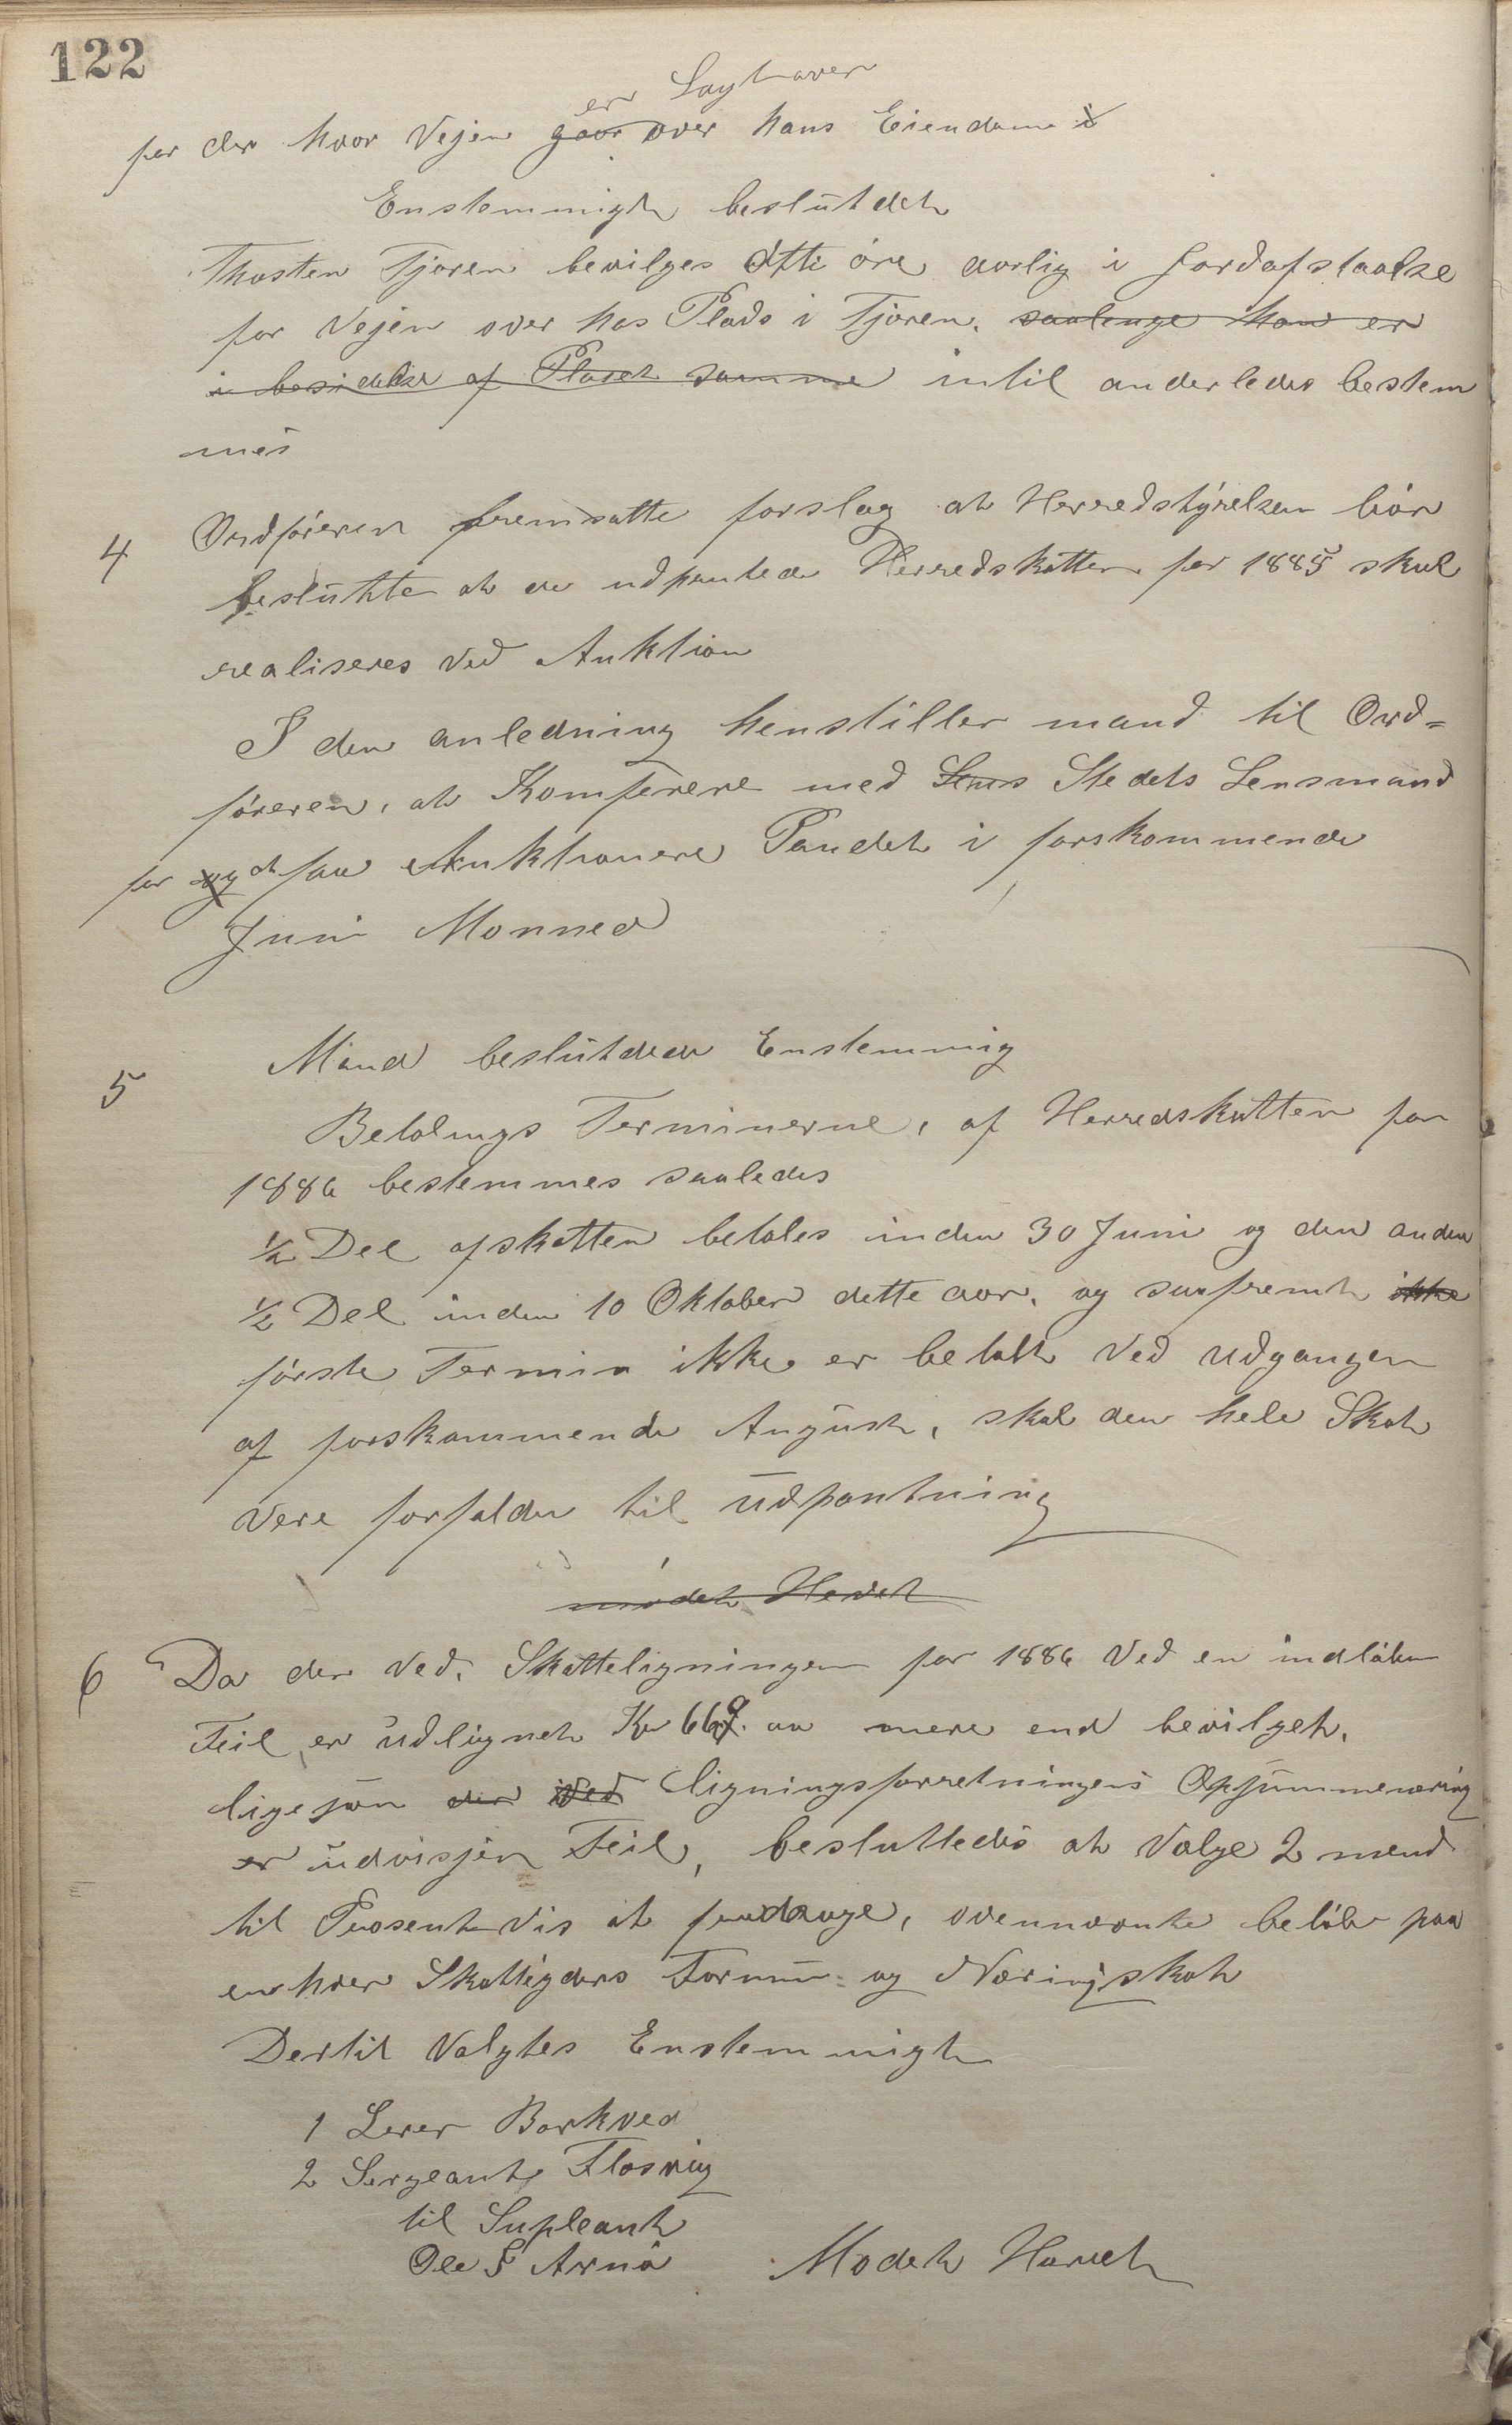 122
er Laghaver
for der hvor Vejen gaar over hans Eiendom i
Enstemmigt beslutdet
Thosten Tjoren bevilges Otti öre aarlig i Jordafstaalse
for Vejen over has Plads i Tjoren. saalenge han er
i besidelse af Pladset samme intil anderledes bestem
mes
4 Ordføreren fremsatte forslag at Herredstyrelsen bör
beslutte at de udpantede Herredskatter for 1885 skul
realiseres ved Auktion
I den anledning henstiller mand til Ord=
föreren, at Komferere med Lens Stedets Lensmand
for og at faa Auktionere Pandet i forskommende
Juni Monned
5 Mand beslutdede Enstemmig
Betalings Terminerne, af Herredskatten for
1886 bestemmes saaledes
1/2 Del af skatten betales inden 30 Juni og den anden
1/2 Del inden 10 Oktober dette aar, og saafremt ikke
förste Termin ikke er betalt ved udgangen
af forskommende August, skal den hele Skat
vere forfalden til udpantning
mödet Hevet
6 Da der ved Skatteligningen for 1886 ved en indlöben
Feil er udlignet Kr 669. mere end bevilget,
ligesom der ved ligningsforretningens Opsummering
er udvisjen Feil, besluttedes at Valge 2 mend
til Prosentvis at fradrage, ovennævnte belöb paa
en hver Skattyders Formu og Næringskat
Dertil Valgtes Enstemmigt
1 Lerer Borkved
2 Sergeant Flosvig
til Supleant
Ole S Arnö Mödet Hævet